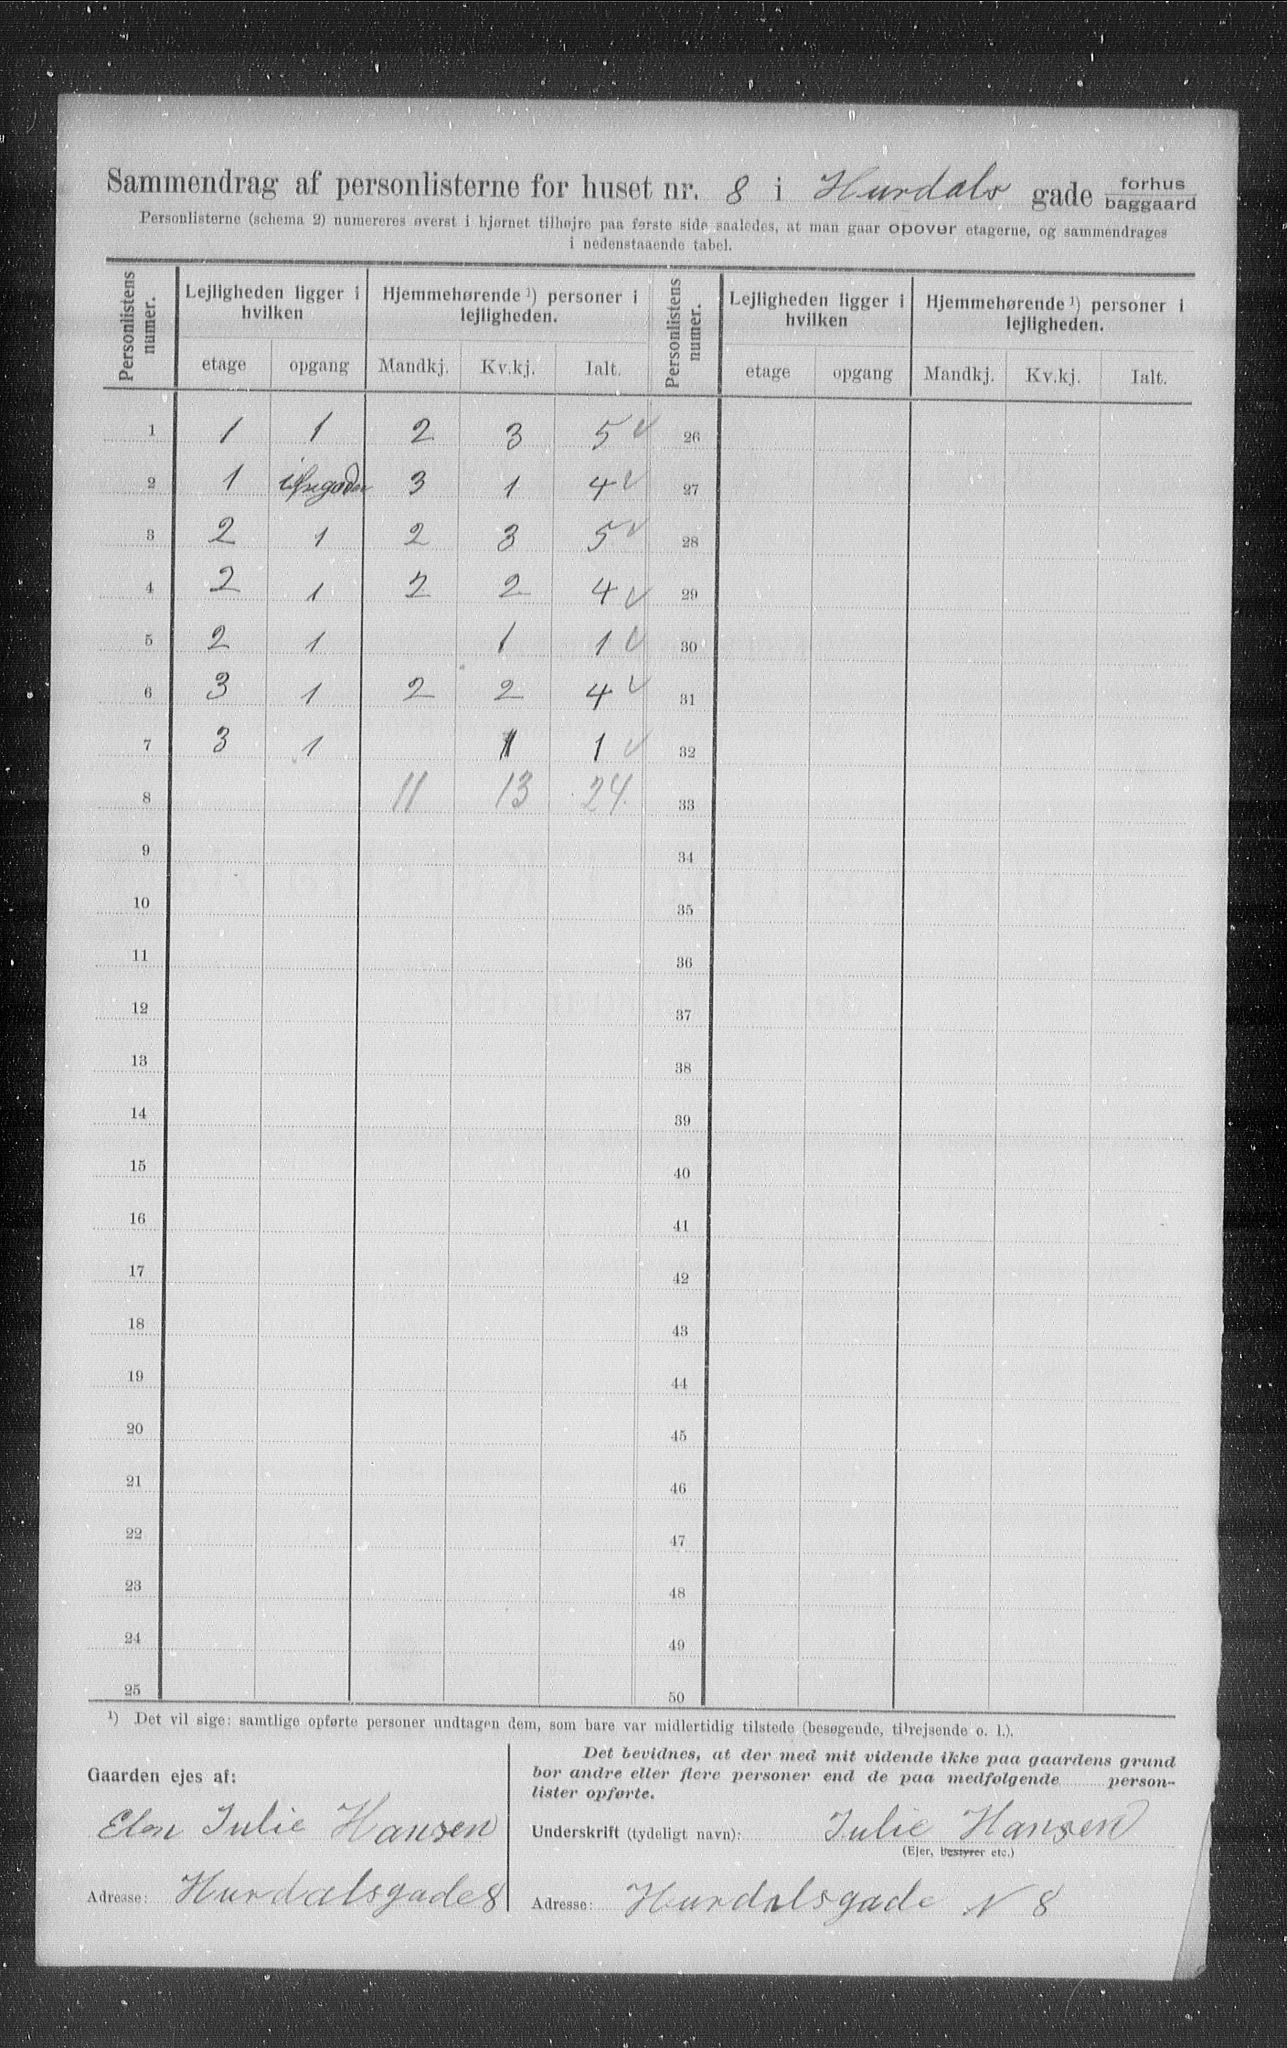 Sammendrag af personlisterne for huset nr. 8 i Hurdals gade forhus baggaard
Personlisterne (schema 2) numereres øverst i hjørnet tilhøjre paa første side saaledes, at man gaar opover etagerne, og sammendrages
i nedenstaaende tabel.
Personlistens numer. Lejligheden ligger i hvilken Hjemmehørende ¹) personer i lejligheden. Personlistens numer. Lejligheden ligger i hvilken Hjemmehørende ¹) personer i lejligheden.
etage opgang Mandkj. Kv.kj. Ialt. etage opgang Mandkj. Kv.kj. Ialt.
1 1 1 2 3 5 ✓ 26
2 1 3 1 4 ✓ 27
3 2 1 2 3 5 ✓ 28
4 2 1 2 2 4 ✓ 29
5 2 1 1 1 ✓ 30
6 3 1 2 2 4 ✓ 31
7 3 1 1 1 ✓ 32
8 11 13 24 33
9 34
10 35
11 36
12 37
13 38
14 39
15 40
16 41
17 42
18 43
19 44
20 45
21 46
22 47
23 48
24 49
25 50
¹) Det vil sige: samtlige opførte personer undtagen dem, som bare var midlertidig tilstede (besøgende, tilrejsende o. l.).
Gaarden ejes af:
Julie Hansen
Adresse: Hurdalsgade 8
Det bevidnes, at der med mit vidende ikke paa gaardens grund
bor andre eller flere personer end de paa medfølgende person-
lister opførte.
Underskrift (tydeligt navn): Julie Hansen
(Ejer, bestyrer etc.)
Adresse: Hurdalsgade N 8